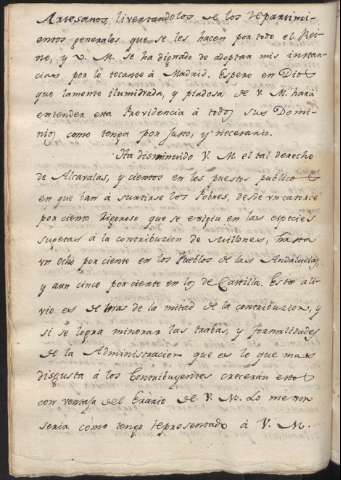 Artesanos, livertandolos de los Repartimi-
entos generales que se les hacen por todo el Rei-
no, y V. M. se ha dignado de adoptar mis instan-
cias por lo tocante à Madrid. Espero en Dios
que la mente iluminada, y piadosa de V. M. hará
extender esta Providencia à todos sus Domi-
nios como tengo por justo, y necesario.
Ha disminuido V. M. el tal derecho
de Alcavalas, y cientos en los puestos publicos
en que han à surtirse los Pobres, desde un catorce
por ciento riguroso que se exigia en las especies
sugetas à la contribucion de millones, hasta
un ocho por ciento en los Pueblos de las Andalucias,
y aun cinco por ciento en los de Castilla. Este ali-
vio es de mas de la mitad de la contribucion, y
si se logra minorar las trabas, y formalidades
de la Administracion que es lo que mas
disgusta à los Contribuyentes crecerán estos
con ventaja del Erario de V. M. Lo mismo
seria como tengo representado à V. M.